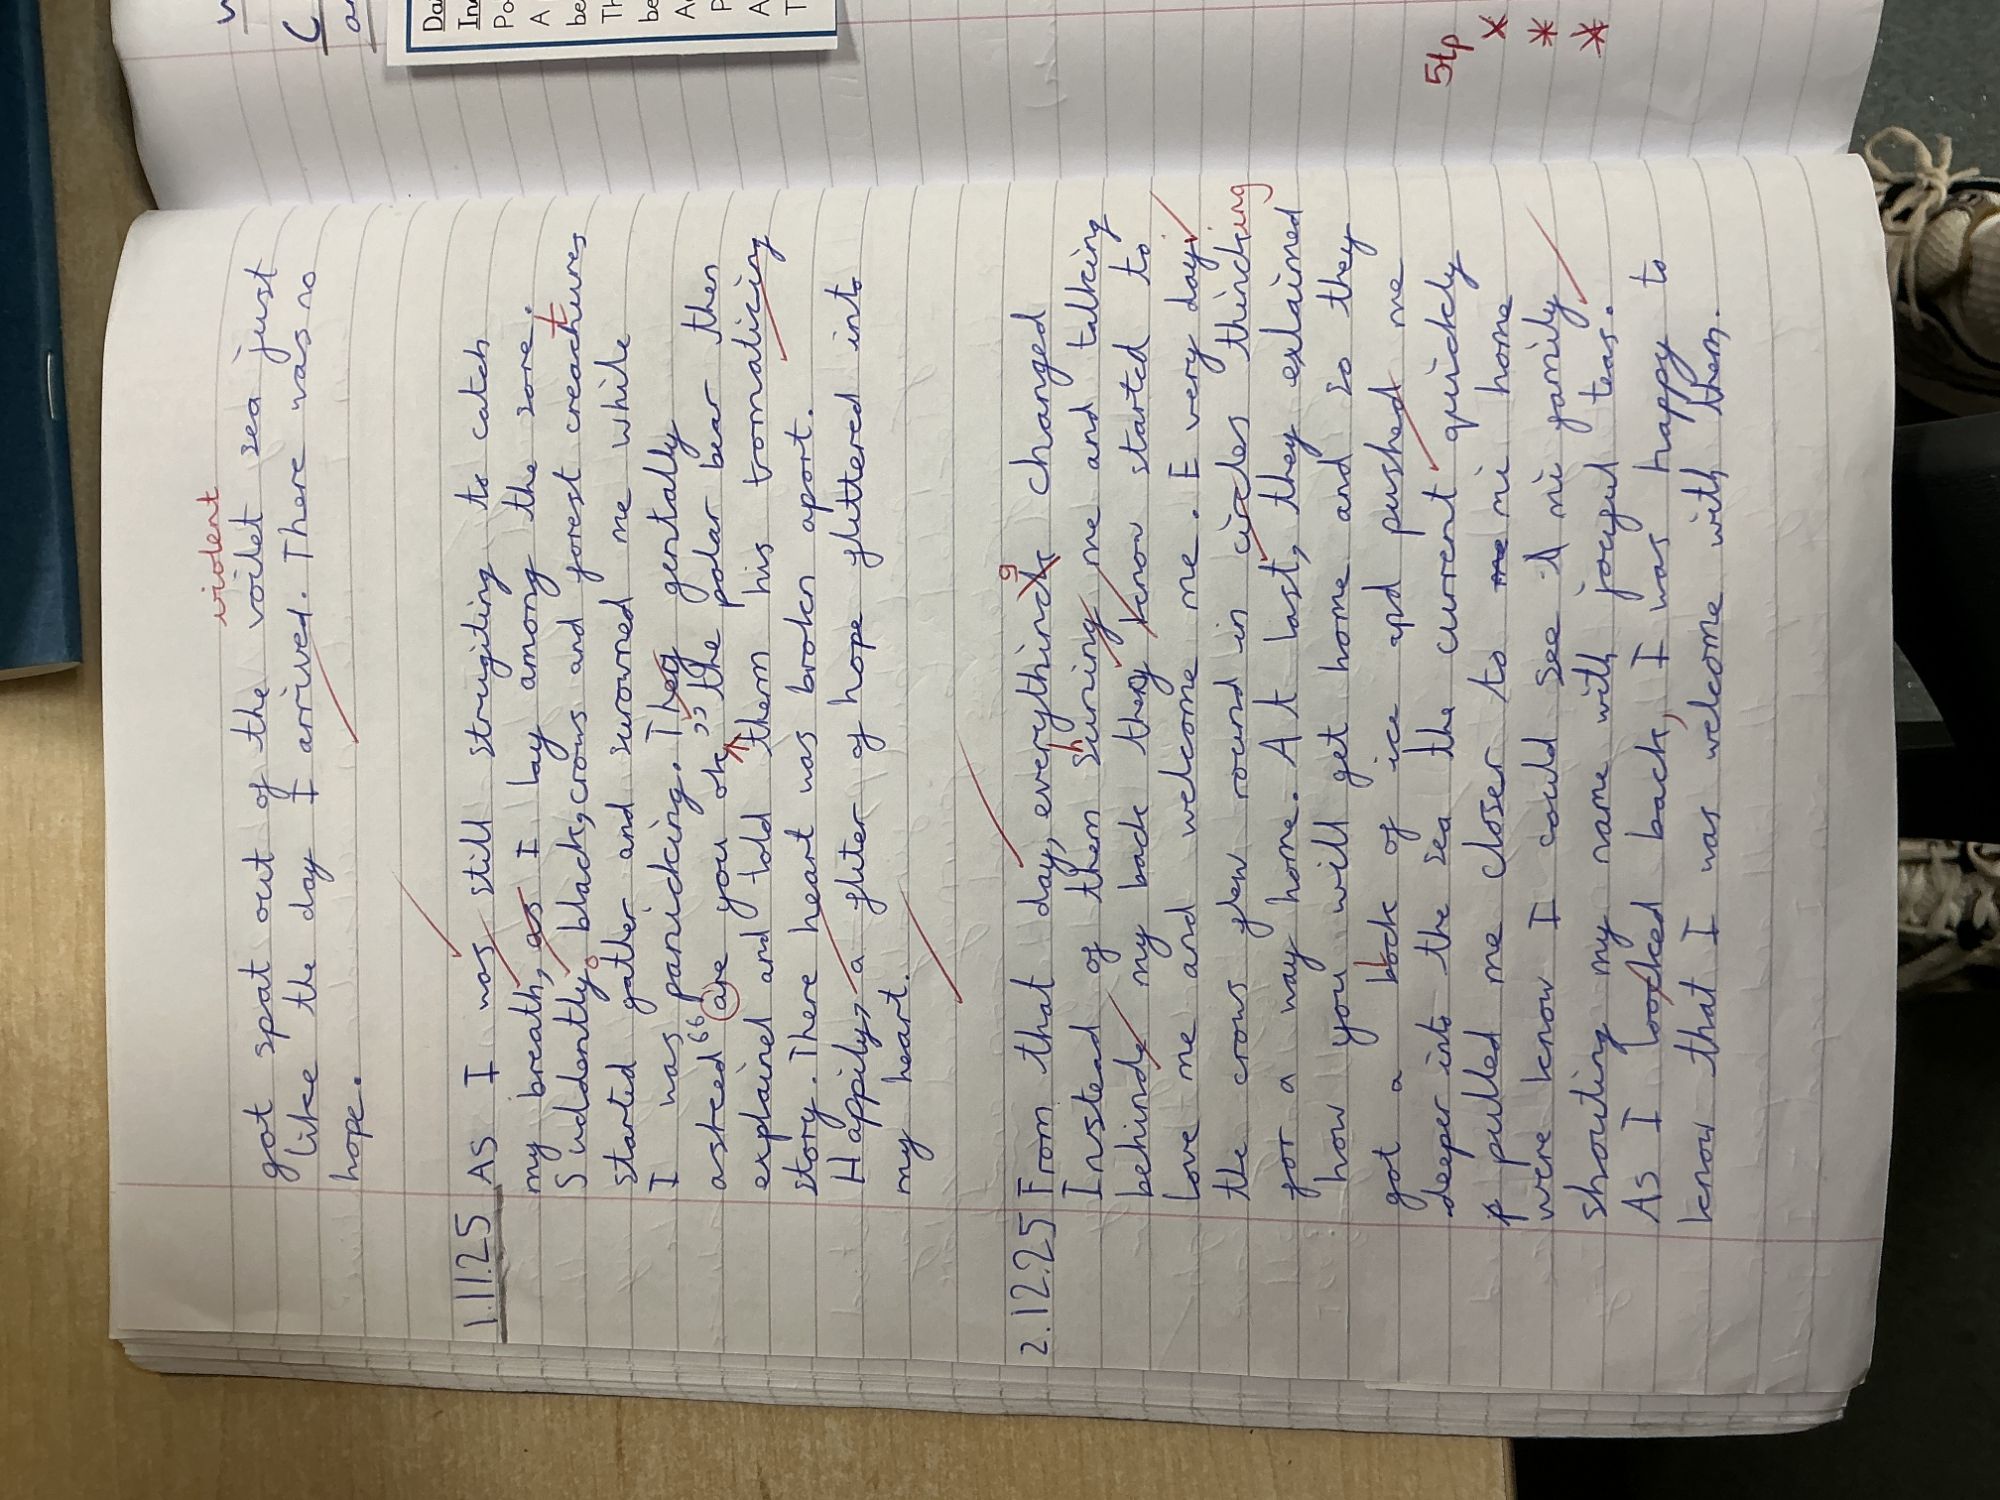 violent
got spat out of the voilet sea just
like the day I arrived. There was no
hope.
1.11.25 As I was still strugiting to catch
my breath, as I lay among the sore.
Suddently black, crows and forest creachures
started gather and surowned me while
I was panicking. They gentally
astreed "are you ok", the polar bear then
explained and told them his tromaticing
story. There heart was broken aport.
Happily, a gliter of hope glittered into
my heart.
2.12.25 From that day, everything changed
Instead of them shuning me and talking
behind my back they know started to
love me and welcome me. E very day
the crows flew round in circles thincking
for a way home. At last, they exlained
how you will get home and so they
got a block of ice and pushed me
deeper into the sea the current quickly
pulled me closer to mi home
were know I could see A mi family
shouting my name with joyful tears.
As I looked back, I was happy to
know that I was welcome with them.
Da
In
Po
A
be
Th
be
A
T
5tp